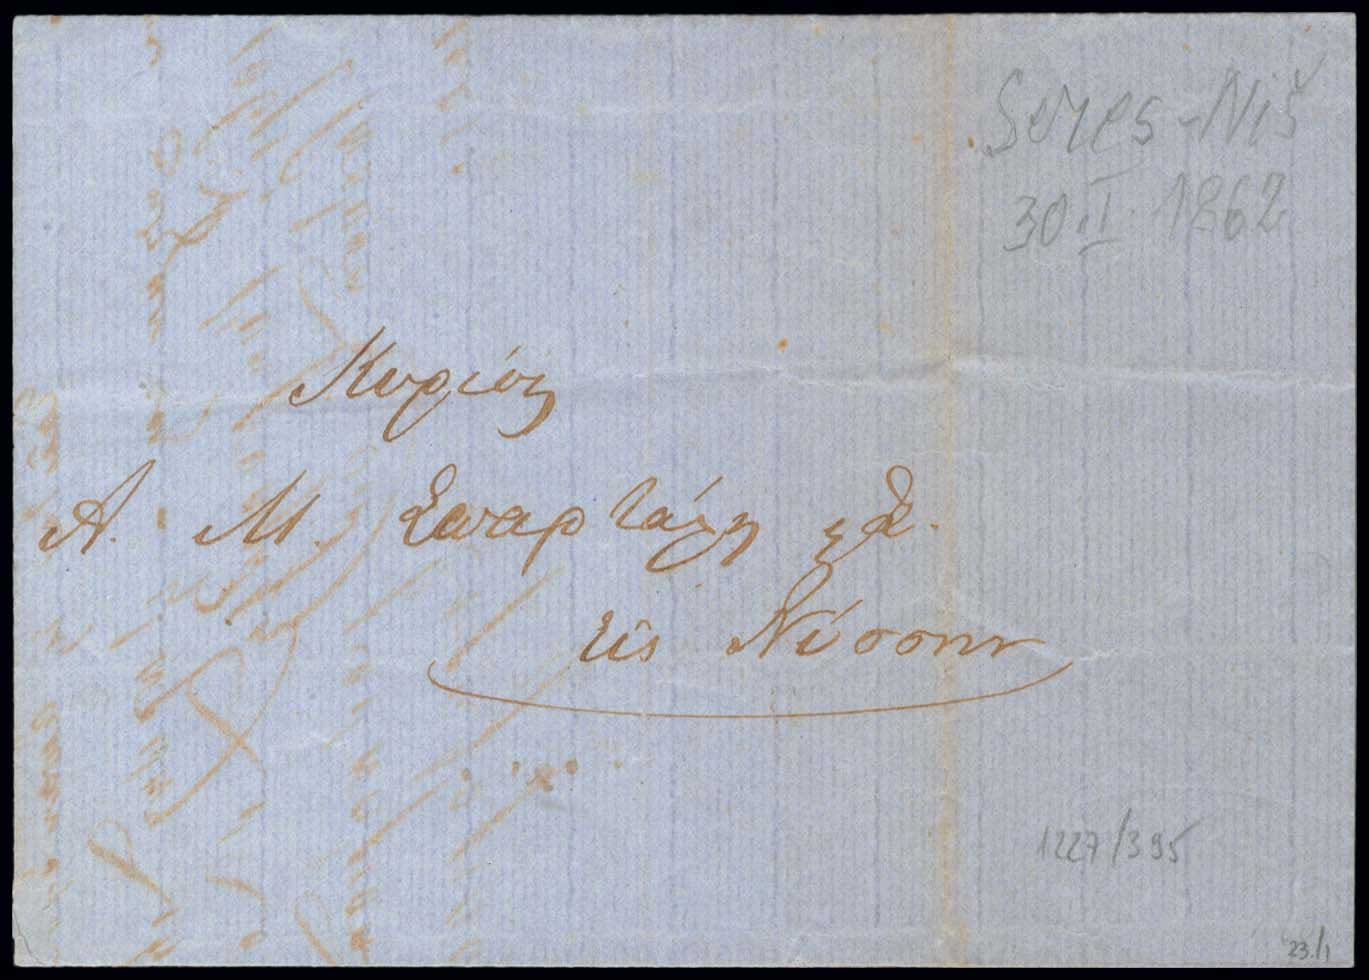 Seres - Niš
30.I. 1862
Κυρίῳ
Α. Μ. Σπαρτάλῃ
εἰς Νύσσην
1227/395
23./1